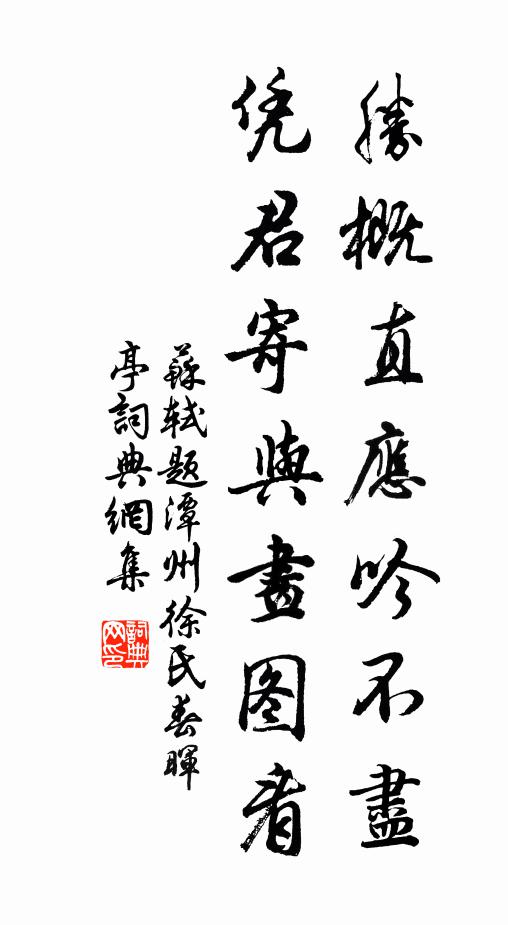 勝概直應吟不盡
凭君寄與畫图看
蘇軾题潭州徐氏春暉
亭詞典網集
詞典
网印